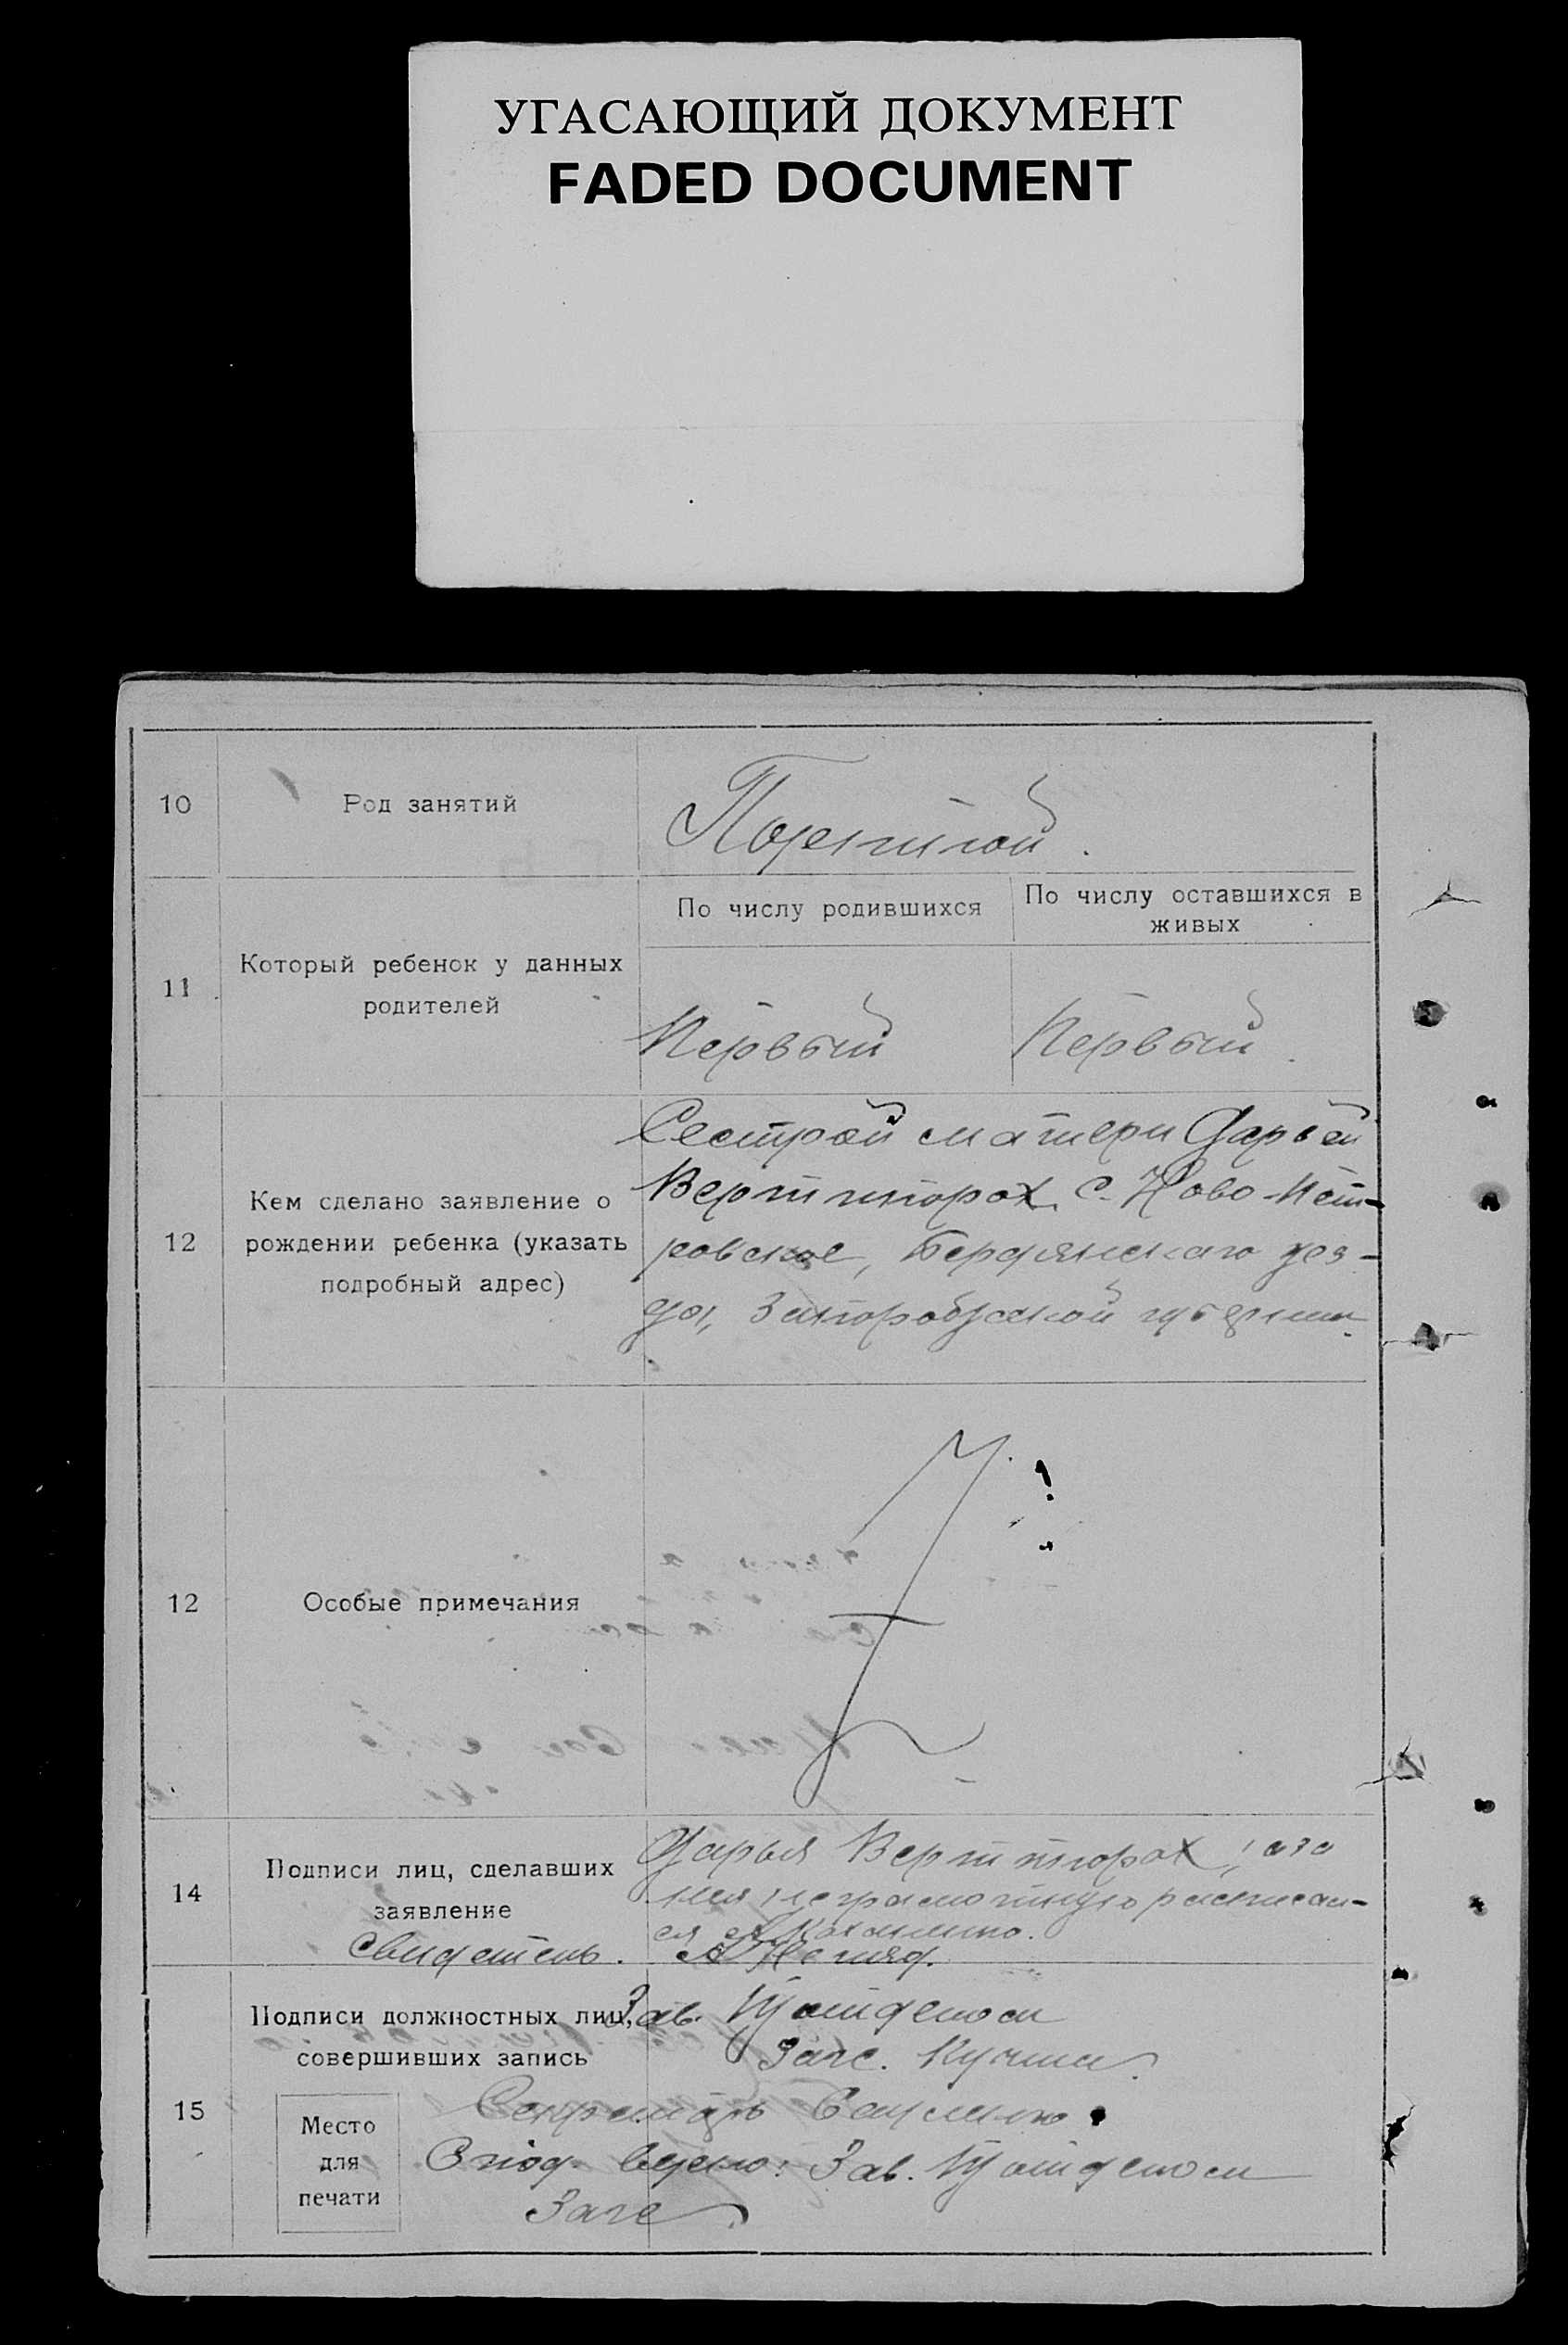 УГАСАЮЩИЙ ДОКУМЕНТ
FADED DOCUMENT
10 Род занятий
11 Который ребенок у данных
родителей
По числу родившихся
По числу оставшихся в
живых
Первый Первый
12 Кем сделано заявление о
рождении ребенка (указать
подробный адрес)
Сестрой матери Дарьей
Вертипорох с. Ново-Пет-
ровское, Бердянскаго уез-
да, Запорожской губернии
12 Особые примечания
14 Подписи лиц, сделавших
заявление
Дарья Вертипорох, а за
нея неграмотную расписал-
ся
Свидетель.
15 Подписи должностных лиц,
совершивших запись
Зав. Подотделом
Загс.
Секретарь
Место
для
печати
С под. верно: Зав. Подотделом
Загс